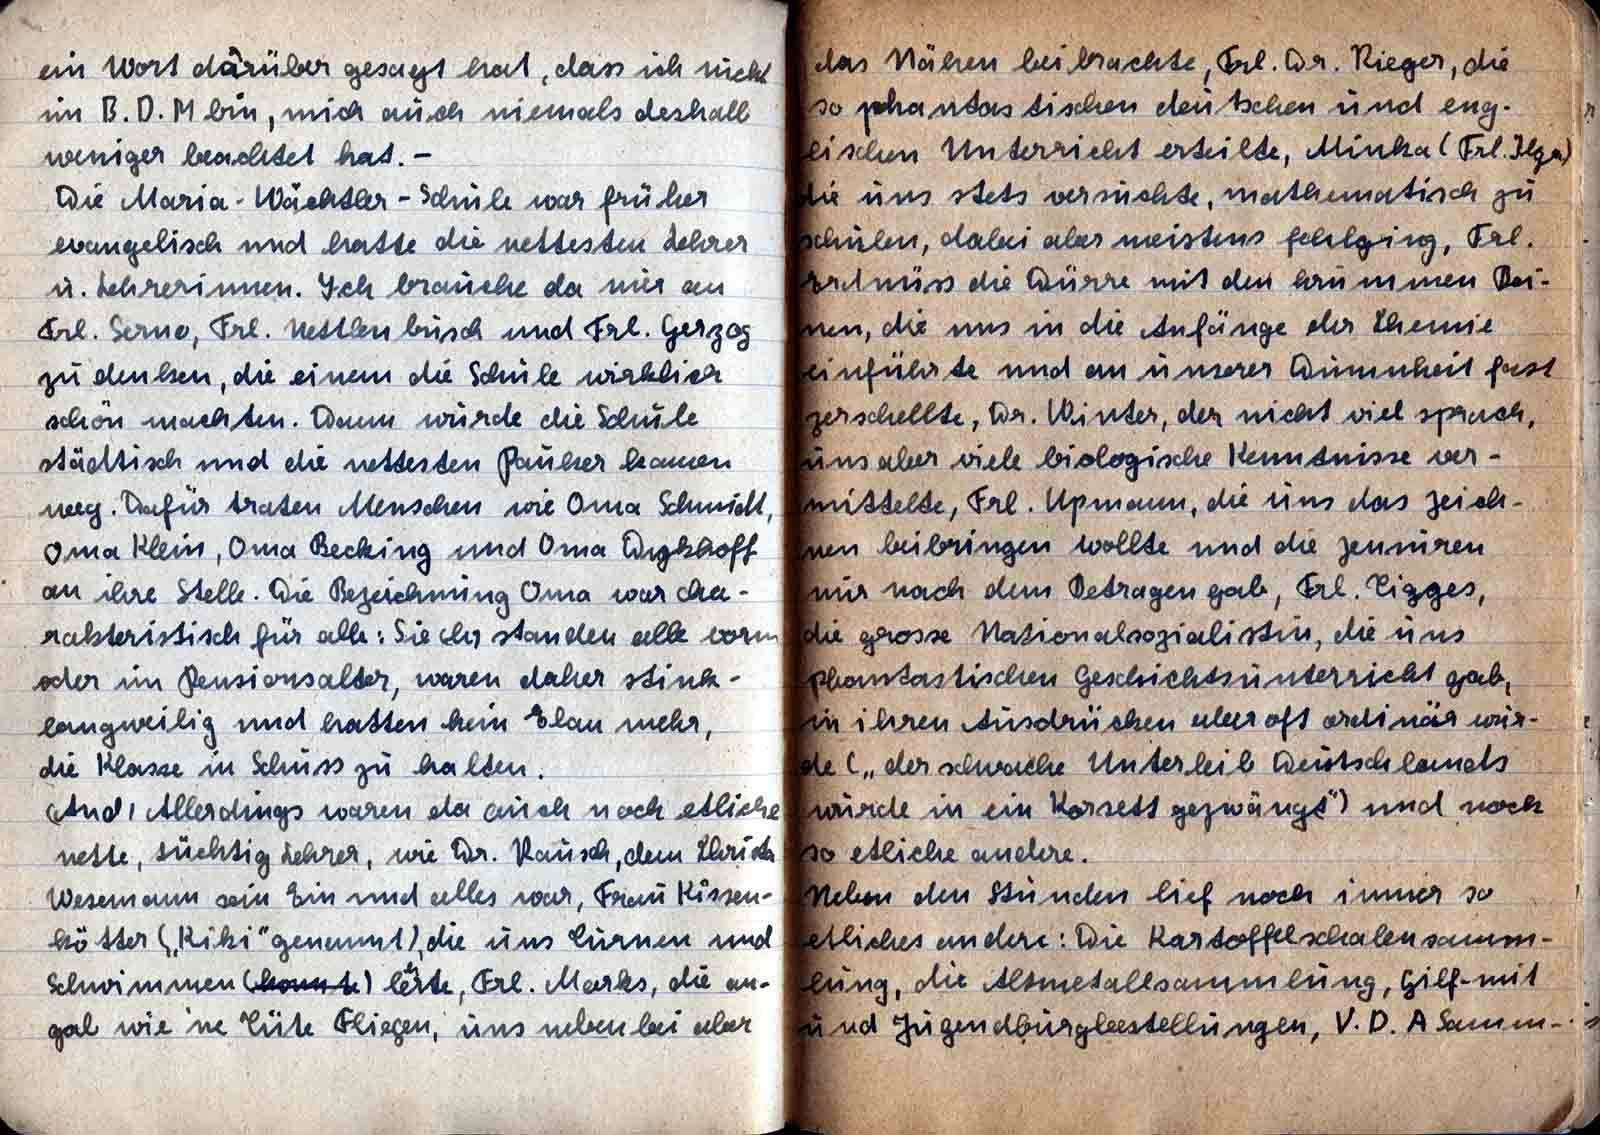 ein Wort darüber gesagt hat, dass ich nicht
im B.D.M bin, mich auch niemals deshalb
weniger beachtet hat. –
Die Maria-Wächtler-Schule war früher
evangelisch und hatte die nettesten Lehrer
u. Lehrerinnen. Ich brauche da nur an
Frl. Serno, Frl. Nettlenbusch und Frl. Herzog
zu denken, die einem die Schule wirklich
schön machten. Dann wurde die Schule
städtisch und die nettesten Pauker kamen
weg. Dafür traten Menschen wie Oma Schmidt,
Oma Klein, Oma Becking und Oma Dyckhoff
an ihre Stelle. Die Bezeichnung Oma war cha-
rakteristisch für alle: Sie standen alle vorm
oder im Pensionsalter, waren daher stink-
langweilig und hatten kein Elan mehr,
die Klasse in Schuss zu halten.
(And) Allerdings waren da auch noch etliche
nette, tüchtig Lehrer, wie Dr. Rausch, dem Christa
Wesemann sein Ein und alles war, Frau Kissen-
kötter („Kiki" genannt), die uns Turnen und
Schwimmen (konnte) lehrte, Frl. Marks, die an-
gab wie 'ne Tüte Fliegen, uns nebenbei aber
das Nähen beibrachte, Frl. Dr. Rieger, die
so phantastischen deutschen und eng-
lischen Unterricht erteilte, Minka (Frl. Ilgn)
die uns stets versuchte, mathematisch zu
schulen, dabei aber meistens fehlging, Frl.
die Dürre mit den krummen Bei-
nen, die uns in die Anfänge der Chemie
einführte und an unserer Dummheit fast
zerschellte, Dr. Winter, der nicht viel sprach,
uns aber viele biologische Kenntnisse ver-
mittelte, Frl. Upmann, die uns das Zeich-
nen beibringen wollte und die Zensuren
nur nach dem Betragen gab, Frl. Tigges,
die grosse Nationalsozialistin, die uns
phantastischen Geschichtsunterricht gab,
in ihren Ausdrücken aber oft ordinär wur-
de („der schwache Unterleib Deutschlands
wurde in ein Korsett gezwängt") und noch
so etliche andere.
Neben den Stunden lief noch immer so
etliches andere: Die Kartoffelschalensamm-
lung, die Altmetallsammlung, Hilf-mit
und Jugendburgbestellungen, V.D.A Samm-